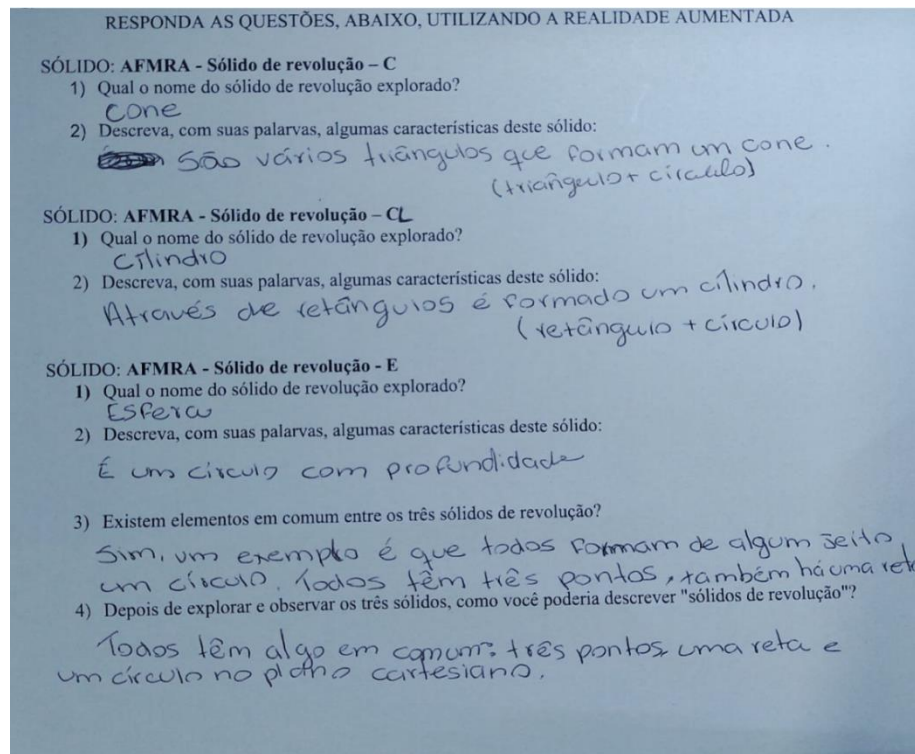 RESPONDA AS QUESTÕES, ABAIXO, UTILIZANDO A REALIDADE AUMENTADA
SÓLIDO: AFMRA - Sólido de revolução – C
1) Qual o nome do sólido de revolução explorado?
Cone
2) Descreva, com suas palarvas, algumas características deste sólido:
São vários triângulos que formam um cone.
(triângulo + círculo)
SÓLIDO: AFMRA - Sólido de revolução – CL
1) Qual o nome do sólido de revolução explorado?
Cílindro
2) Descreva, com suas palarvas, algumas características deste sólido:
Através de retângulos é formado um cílindro.
(retângulo + círculo)
SÓLIDO: AFMRA - Sólido de revolução - E
1) Qual o nome do sólido de revolução explorado?
Esfera
2) Descreva, com suas palarvas, algumas características deste sólido:
É um círculo com profundidade
3) Existem elementos em comum entre os três sólidos de revolução?
Sim, um exemplo é que todos formam de algum jeito
um círculo. Todos têm três pontos, também há uma reta
4) Depois de explorar e observar os três sólidos, como você poderia descrever "sólidos de revolução"?
Todos têm algo em comum: três pontos, uma reta e
um círculo no plano cartesiano.